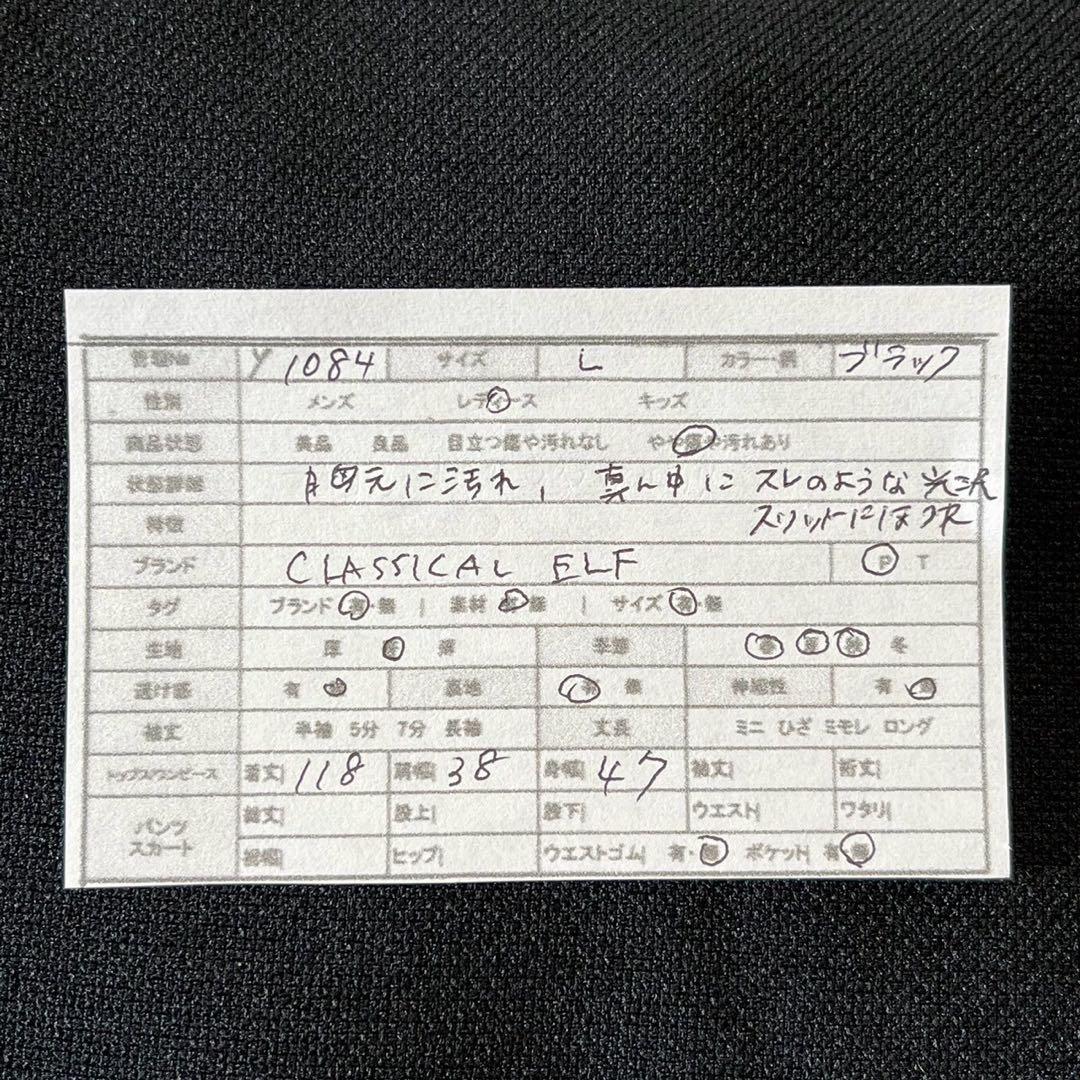 管理No Y 1084 サイズ L カラー・柄 ブラック
性別 メンズ レディース キッズ
商品状態 美品 良品 目立つ傷や汚れなし やや傷や汚れあり
状態詳細 胸元に汚れ, 真ん中にスレのような光沢
特徴 スリットにほつれ
ブランド CLASSICAL ELF P T
タグ ブランド 有・無 | 素材 有・無 | サイズ 有・無
生地 厚 薄 季節 春 夏 秋 冬
透け感 有 裏地 有 無 伸縮性 有 無
袖丈 半袖 5分 7分 長袖 丈長 ミニ ひざ ミモレ ロング
トップス/ワンピース 着丈| 118 肩幅| 38 身幅| 47 袖丈| 裄丈|
パンツ スカート 総丈| 股上| 股下| ウエスト| ワタリ|
裾幅| ヒップ| ウエストゴム| 有・無 ポケット| 有 無